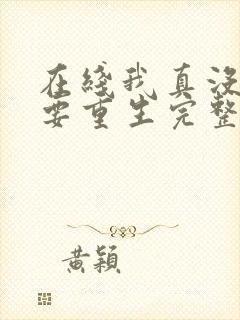 在綫我真没
要重生完整
黄穎